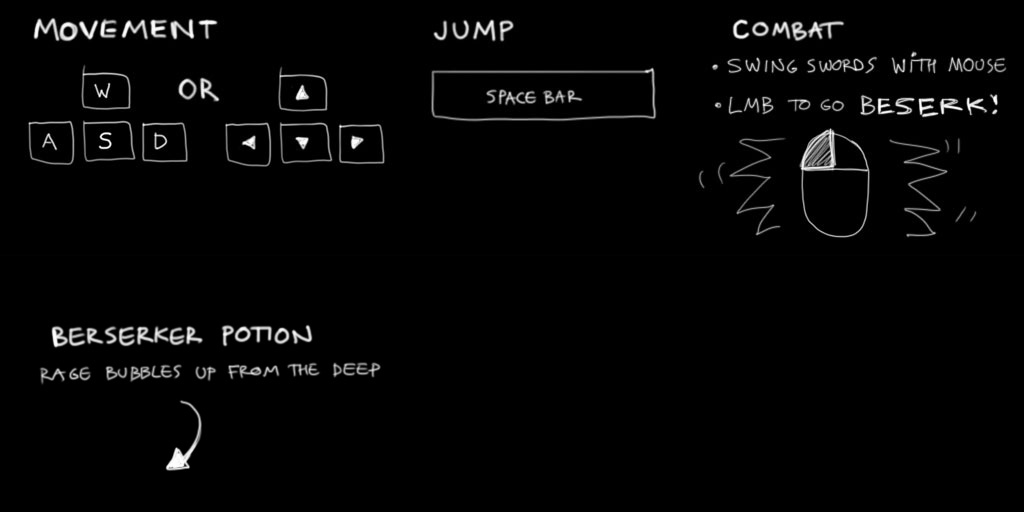 MOVEMENT
W OR ▲
A S D ◄ ▼ ►
JUMP
SPACE BAR
COMBAT
• SWING SWORDS WITH MOUSE
• LMB TO GO BESERK!
BERSERKER POTION
RAGE BUBBLES UP FROM THE DEEP